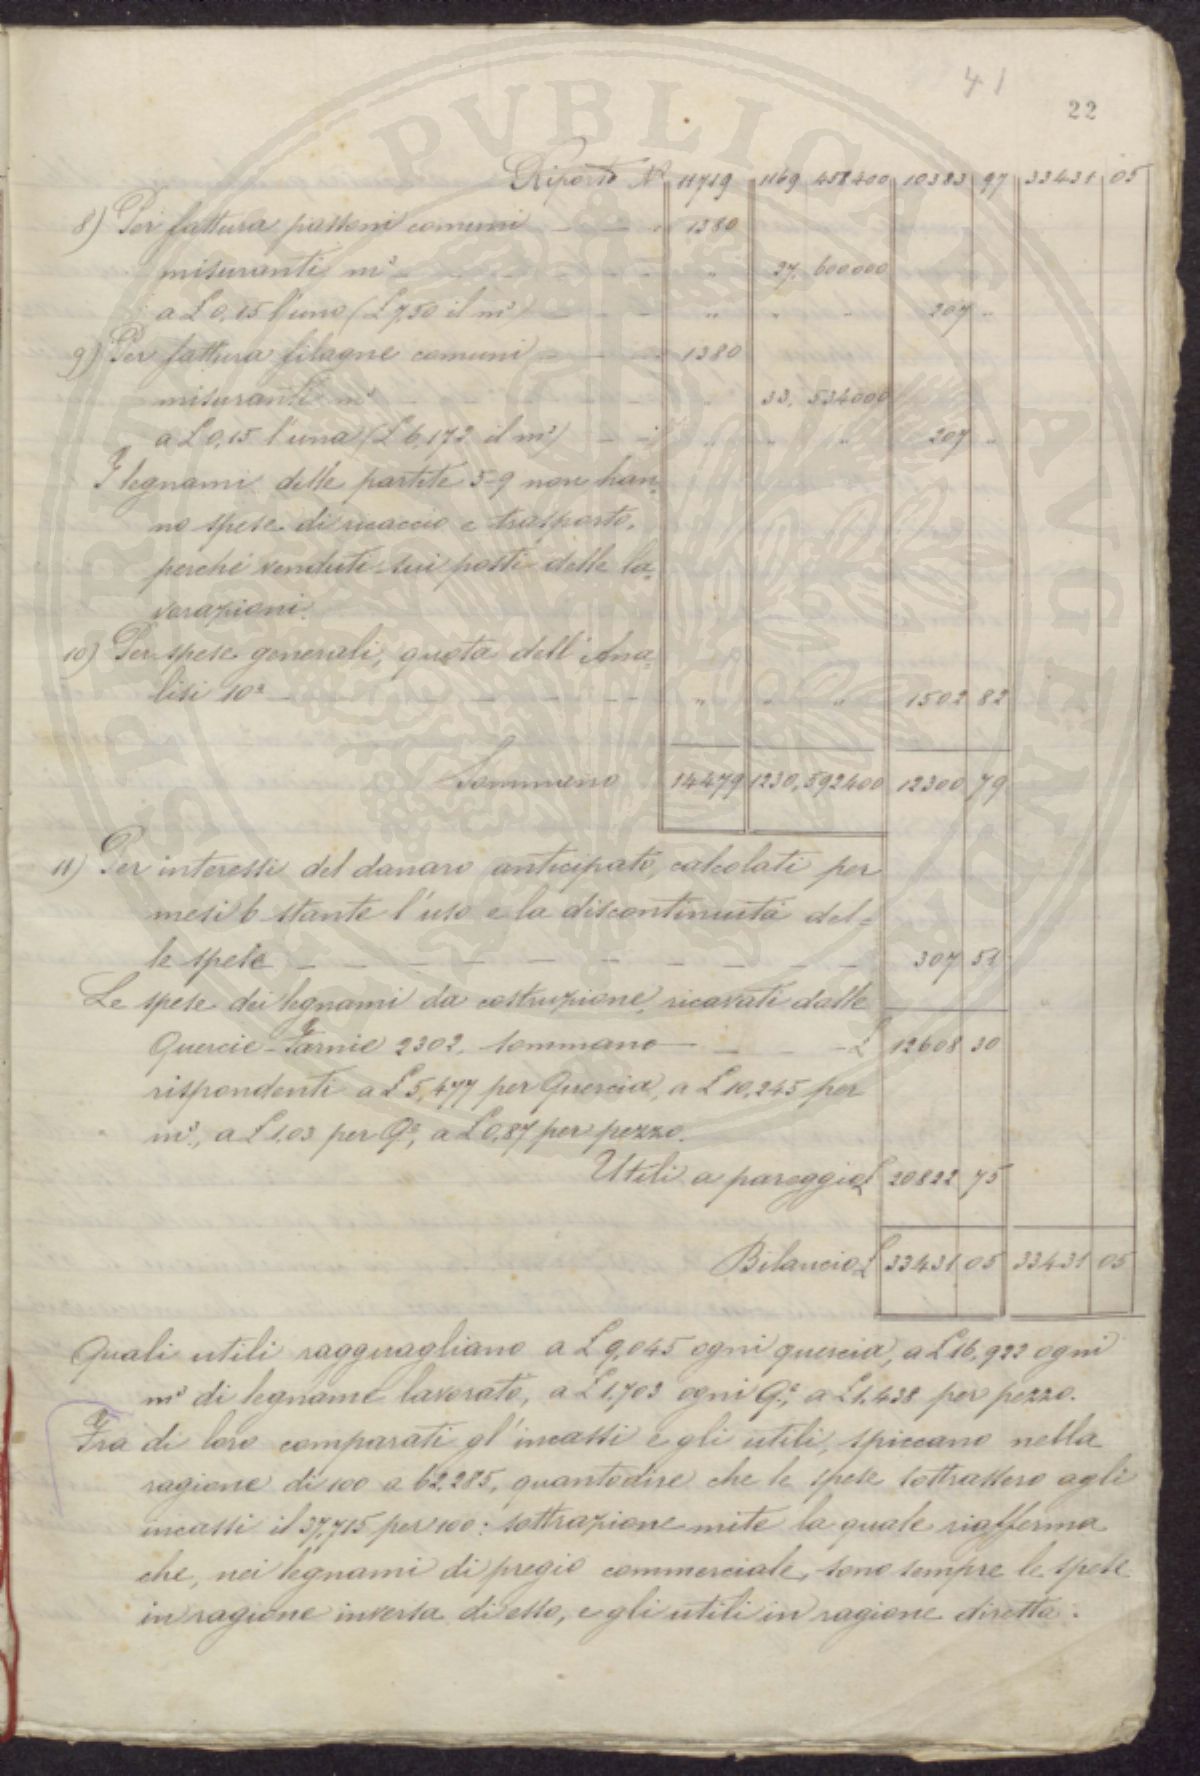 41
22
Riporto N° 11719 1169 458400 10383 97 33431 05
8) Per fattura passoni comuni — — — 1380
misuranti m³ — — — — — — " 27. 600000
a £ 0,15 l'uno (£ 7,50 il m³) — — — " " " 207 "
9) Per fattura filagne comuni — — — 1380
misuranti m³ — — — — — — " 33. 534000
a £ 0,15 l'una (£ 6,172 il m³) — — " " " 207 "
I legnami delle partite 5-9 non han=
no spese di ricaccio e trasporto,
perché venduti sui posti delle la=
vorazioni.
10) Per spese generali, quota dell'Ana=
lisi 10ª — — — — — — — " " " 1502 82
Sommano 14479 1230,592400 12300 79
11) Per interessi del danaro anticipato, calcolati per
mesi 6 stante l'uso e la discontinuità del=
le spese — — — — — — — — — — 307 51
Le spese dei legnami da costruzione, ricavati dalle
Quercie-Farnie 2302, sommano — — — — £ 12608 30
rispondenti a £ 5,477 per Quercia, a £ 10,245 per
m³, a £ 1,03 per Q.e, a £ 0,87 per pezzo.
Utili a pareggio £ 20822 75
Bilancio £ 33431 05 33431 05
Quali utili ragguagliano a £ 9,045 ogni quercia, a £ 16,922 ogni
m³ di legname lavorato, a £ 1,703 ogni Q.e, a £ 1,438 per pezzo.
Fra di loro comparati gl'incassi e gli utili, spiccano nella
ragione di 100 a 62,285, quantodire che le spese sottrassero agli
incassi il 37,715 per 100: sottrazione mite la quale riafferma
che, nei legnami di pregio commerciale, sono sempre le spese
in ragione inversa di esso, e gli utili in ragione diretta.
PVBLICAE